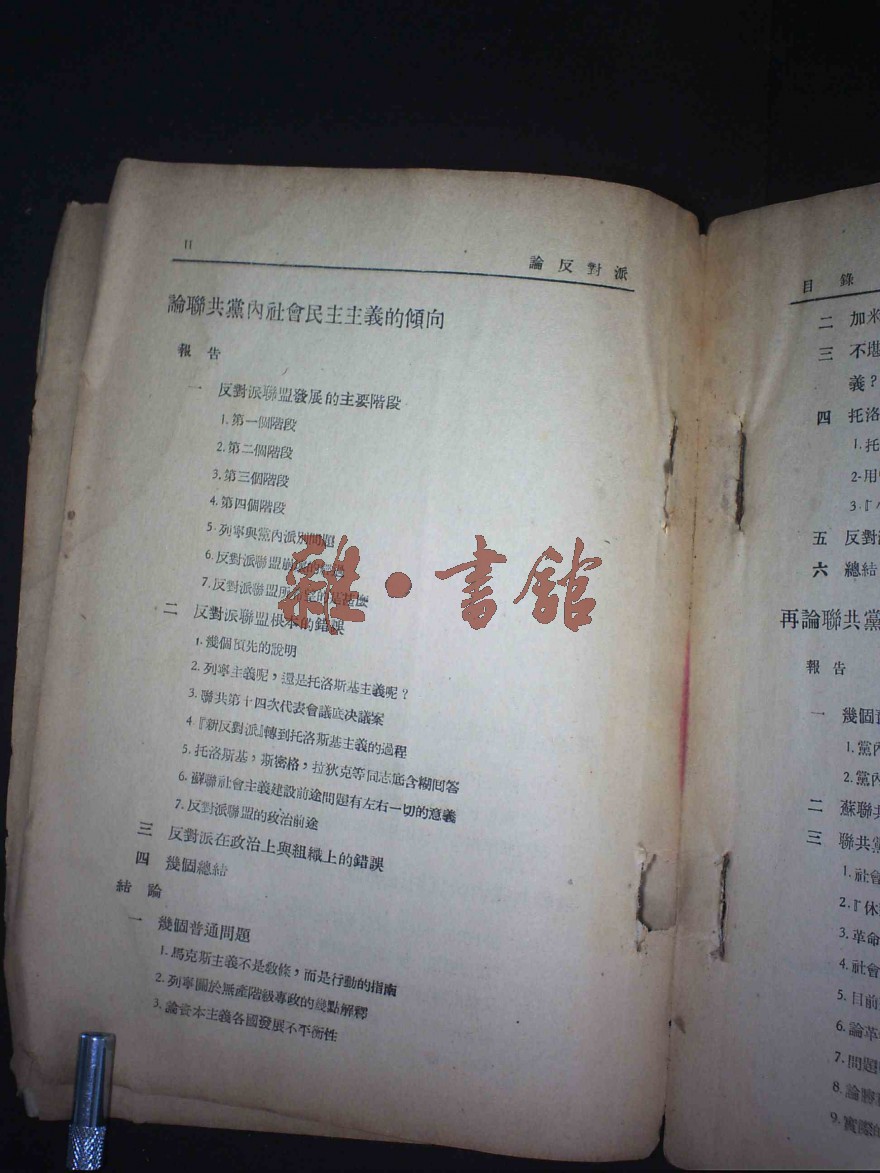 II
論反對派
論聯共黨內社會民主主義的傾向
報告
一 反對派聯盟發展的主要階段
1.第一個階段
2.第二個階段
3.第三個階段
4.第四個階段
5.列寧與黨內派別問題
6.反對派聯盟
7.反對派聯盟所希望的是甚麼
二 反對派聯盟根本的錯誤
1.幾個預先的說明
2.列寧主義呢，還是托洛斯基主義呢？
3.聯共第十四次代表會議底決議案
4.『新反對派』轉到托洛斯基主義的過程
5.托洛斯基，斯密格，拉狄克等同志底含糊回答
6.蘇聯社會主義建設前途問題有左右一切的意義
7.反對派聯盟的政治前途
三 反對派在政治上與組織上的錯誤
四 幾個總結
結論
一 幾個普通問題
1.馬克斯主義不是教條，而是行動的指南
2.列寧關於無產階級專政的幾點解釋
3.論資本主義各國發展不平衡性
雜·書館
目錄
二 加米
三 不堪
義？
四 托洛
1.托
2.用
3.『
五 反對
六 總結
再論聯共黨
報告
一 幾個
1.黨內
2.黨內
二 蘇聯共
三 聯共黨
1.社會
2.『休
3.革命
4.社會
5.目前
6.論革
7.問題
8.論
9.實際的